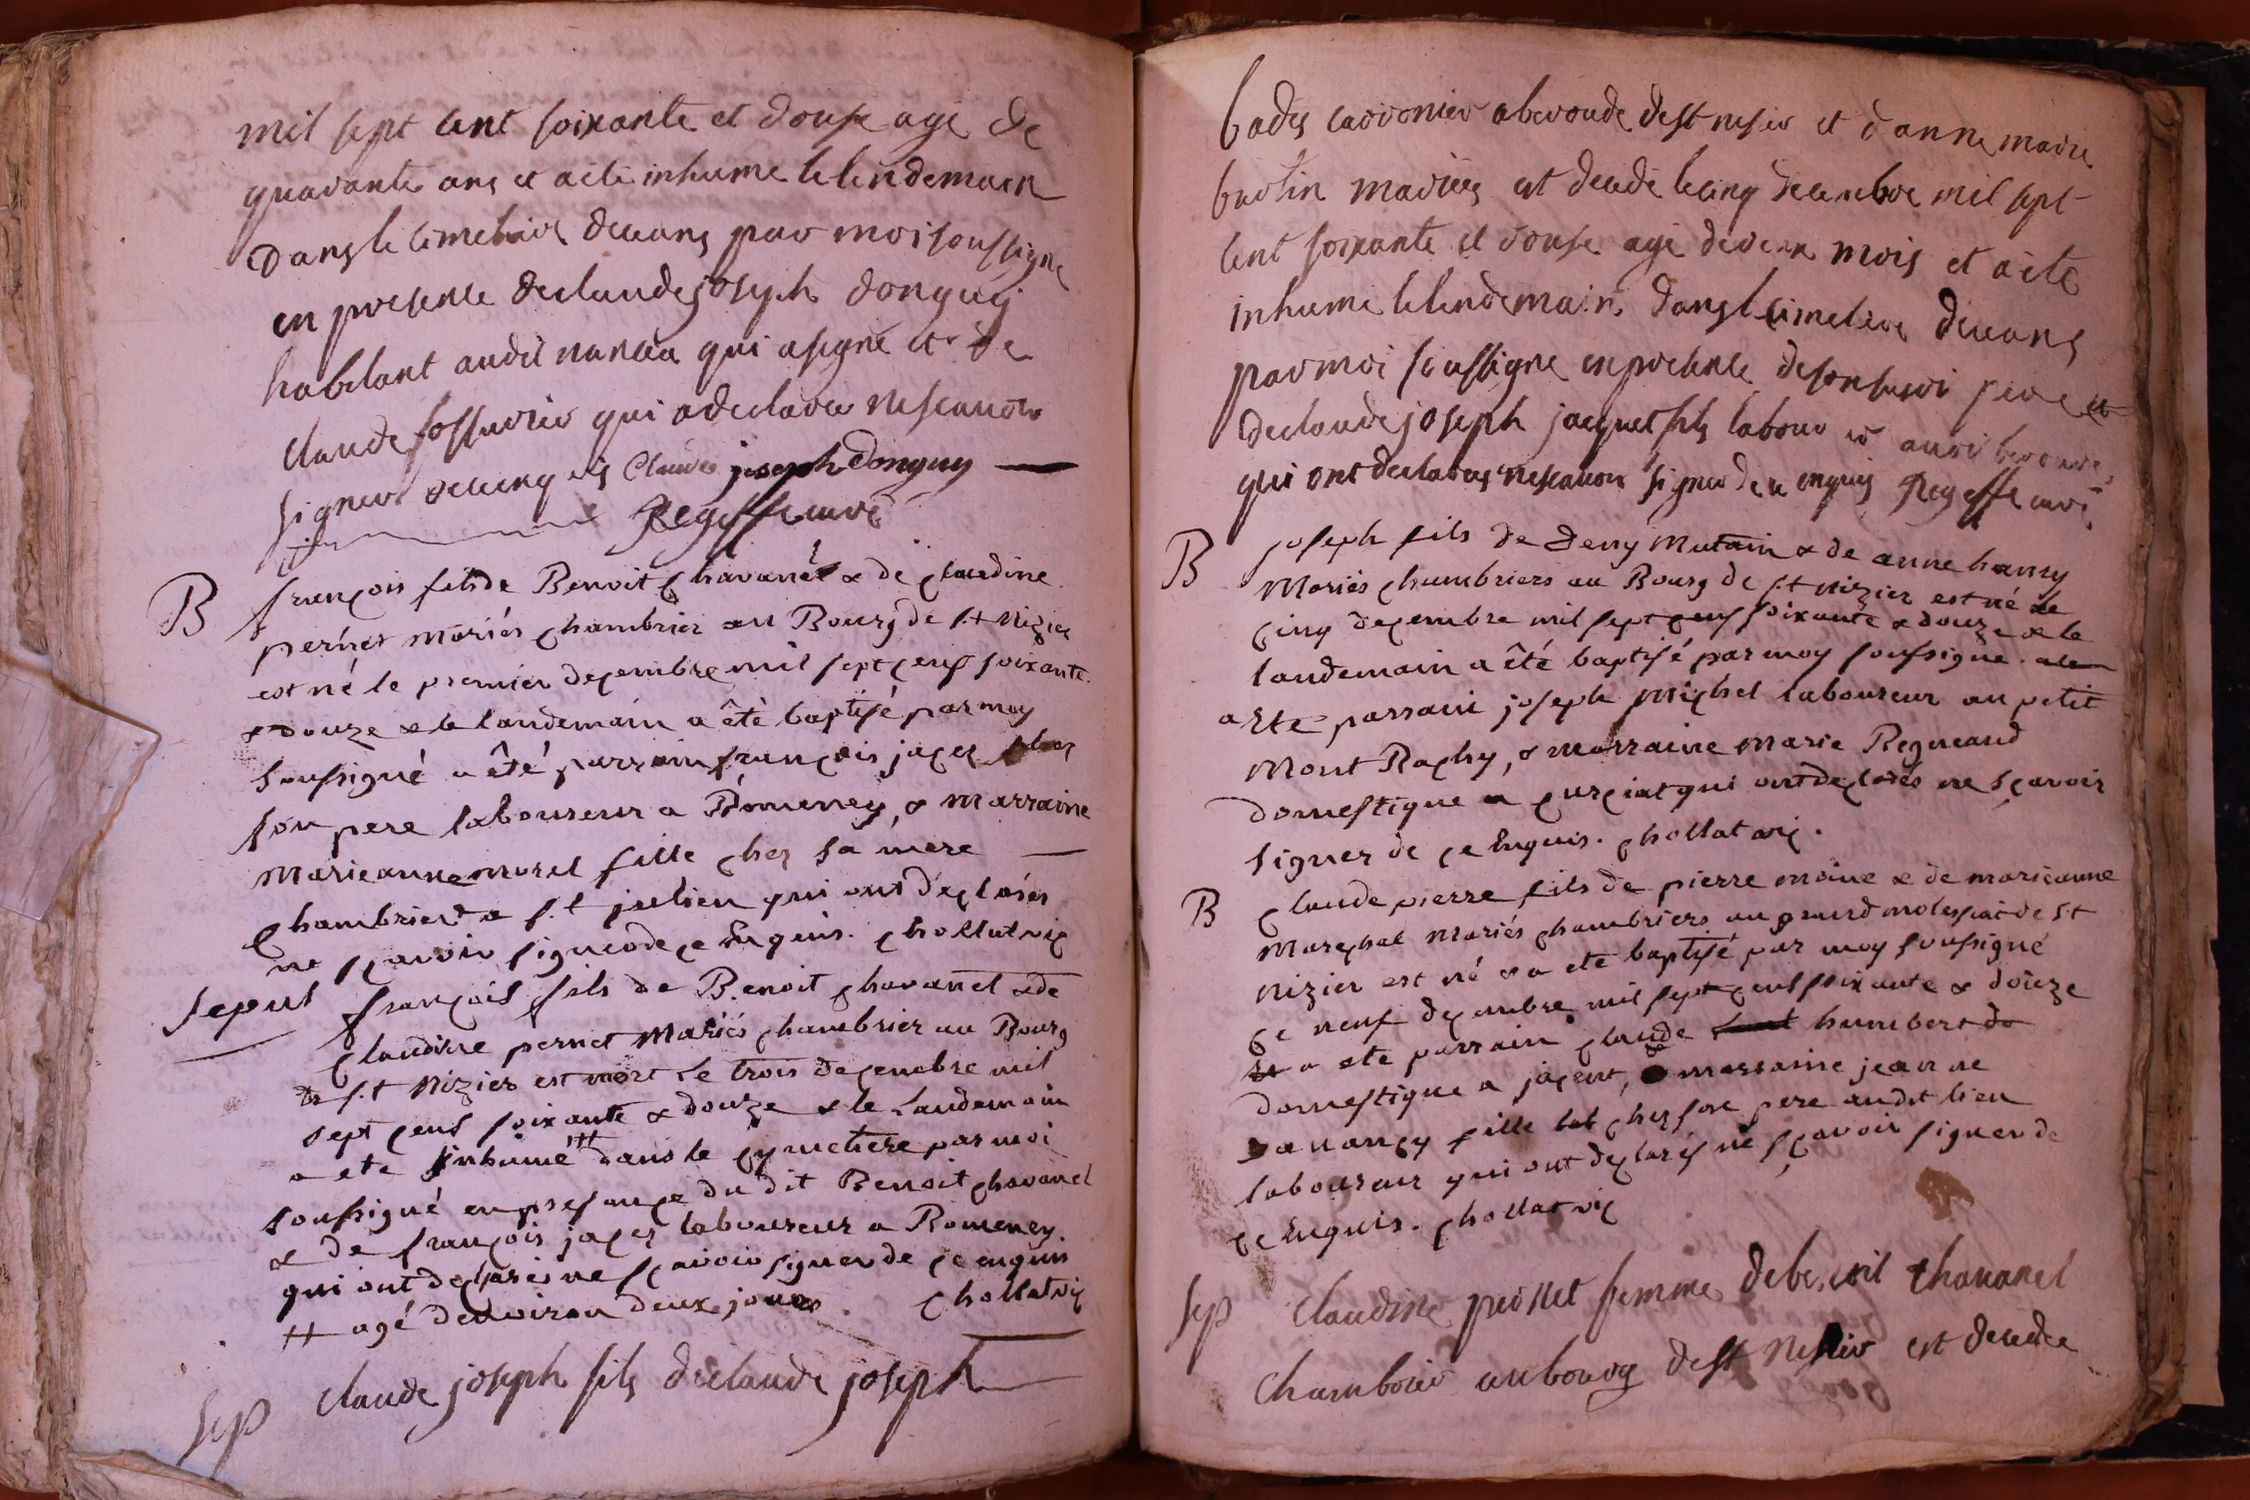 mil sept cent soixante et douse agé de
quarante ans et a été inhumé le lendemain
dans le cimetiere deceans par moi soussigné
en presence de claude joseph donguy
habitant audit nanceu qui a signé et de
claude fossurier qui a declarer ne scavoir
signer de ce enquis Claude joseph Donguy
Regeffe curé
B françois fils de Benoit chavanel & de claudine
pernet mariés chambrier au Bourg de s.t Nizier
est né le premier decembre mil sept cens soixante
& douze & le landemain a êté baptisé par moy
soussigné a êté parrain françois jacer chez
son pere laboureur a Romeney, & marraine
marieanne morel fille chez sa mere
chambriere a s.t julien qui ont déclarés
ne scavoir signer de ce Enquis. chollat vic
sepul françois fils de Benoit chavanel & de
claudine pernet mariés chambrier au Bourg
de s.t Nizier est mort le trois decembre mil
sept cens soixante & douze & le landemain
a ete inhumé ++ dans le cymetiere par moi
soussigné en presance du dit Benoit chavanel
& de françois jacer laboureur a Romeney
qui ont declarés ne scavoir signer de ce enquis
++ agé denviron deux jours. chollat vic
sep claude joseph fils de claude joseph
badey caronier a beroude de st nesier et d anne marie
burtin mariées est decedé le cinq decembre mil sept
cent soixante et douse agé de deux mois et a été
inhumé le lendemain dans le cimetiere deceans
par moi soussigné en presence de son susdi pere et
de claude joseph jacquet fils labour er audi beroude
qui ont declarés ne scavoir signer de ce enquis Regeffe curé
B joseph fils de Deny Mutain & de anne hanry
Mariés chambriers au Bourg de s.t Nizier est né le
cinq decembre mil sept cens soixante & douze & le
landemain a êté baptisé par moy soussigné.
a ete parrain joseph Michel laboureur au petit
Mont Raphy, & marraine Marie Regneaud
domestique a curciat qui ont declarés ne scavoir
signer de ce Enquis. chollat vic.
B claude pierre fils de pierre moine & de marieanne
Marechal Mariés chambriers au grand molessiat de s.t
Nizier est né & a ete baptisé par moy soussigné
ce neuf decembre mil sept cens soixante & douze
a ete parrain claude humbert
domestique a jacent, marraine jeanne
vanancy fille chez son pere au dit lieu
laboureur qui ont declarés ne scavoir signer de
ce Enquis. chollat vic
sep Claudine pernet femme de benoit chavanel
chambrier au bourg de st Nesier est decedée